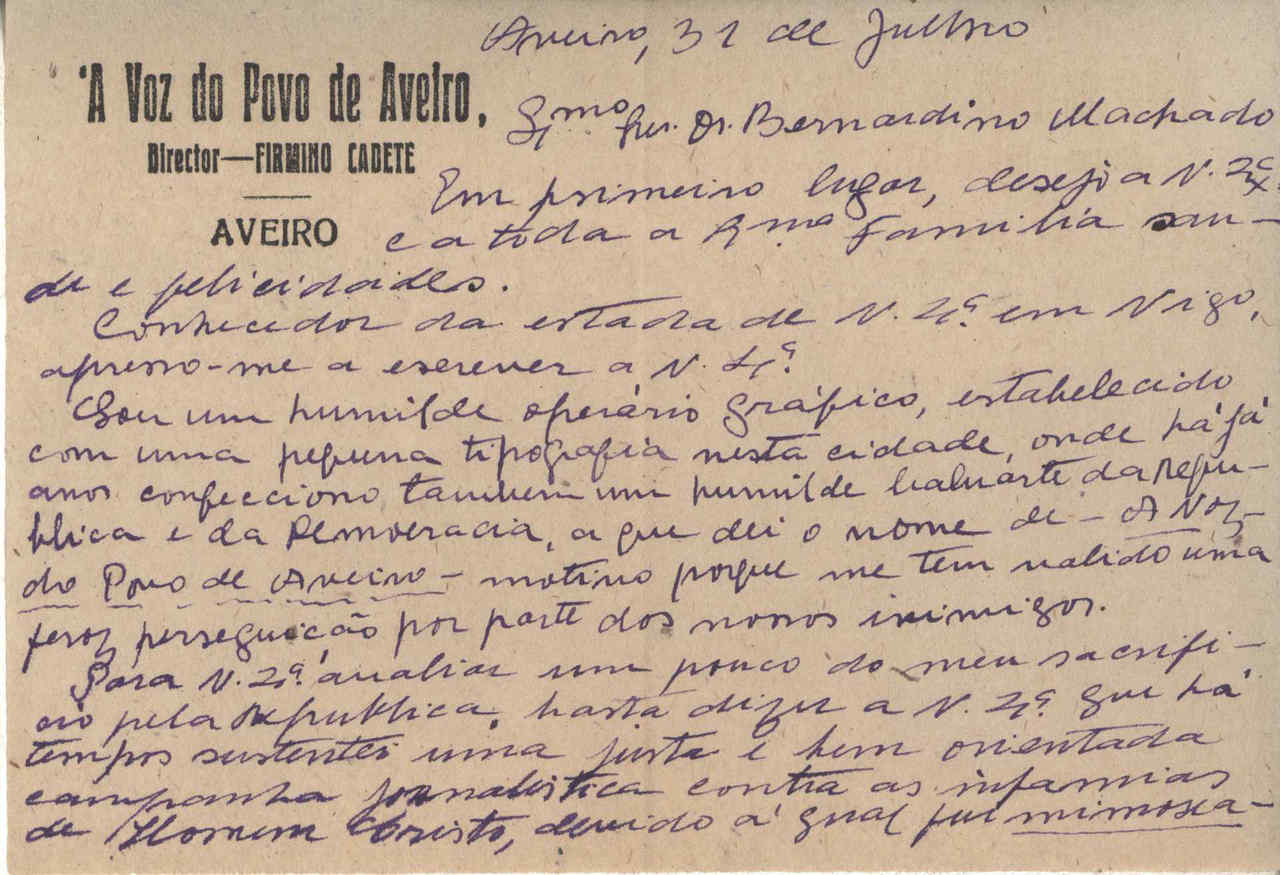 Aveiro, 31 de Julho
'A Voz do Povo de Aveiro,
Director—FIRMINO CADETE
AVEIRO
Exmo Snr. Dr. Bernardino Machado
Em primeiro lugar, desejo a V. Exª
e a toda a Exma Familia sau-
de e felicidades.
Conhecedor da estada de V. Exª. em Vigo,
apresso-me a escrever a V. Exª
Sou um humilde operário gráfico, estabelecido
com uma pequena tipografia nesta cidade, onde há já
anos confecciono tambem um humilde baluarte da Repu-
blica e da Democracia, a que dei o nome de - A Voz
do Povo de Aveiro - motivo porque me tem valido uma
feroz perseguição por parte dos nossos inimigos.
Para V. Exª. avaliar um pouco do meu sacrifi-
cio pela Republica, basta dizer a V. Exª. que há
tempos sustentei uma justa e bem orientada
campanha jornalistica contra as infamias
de Homem Cristo, devido á qual fui mimosea-